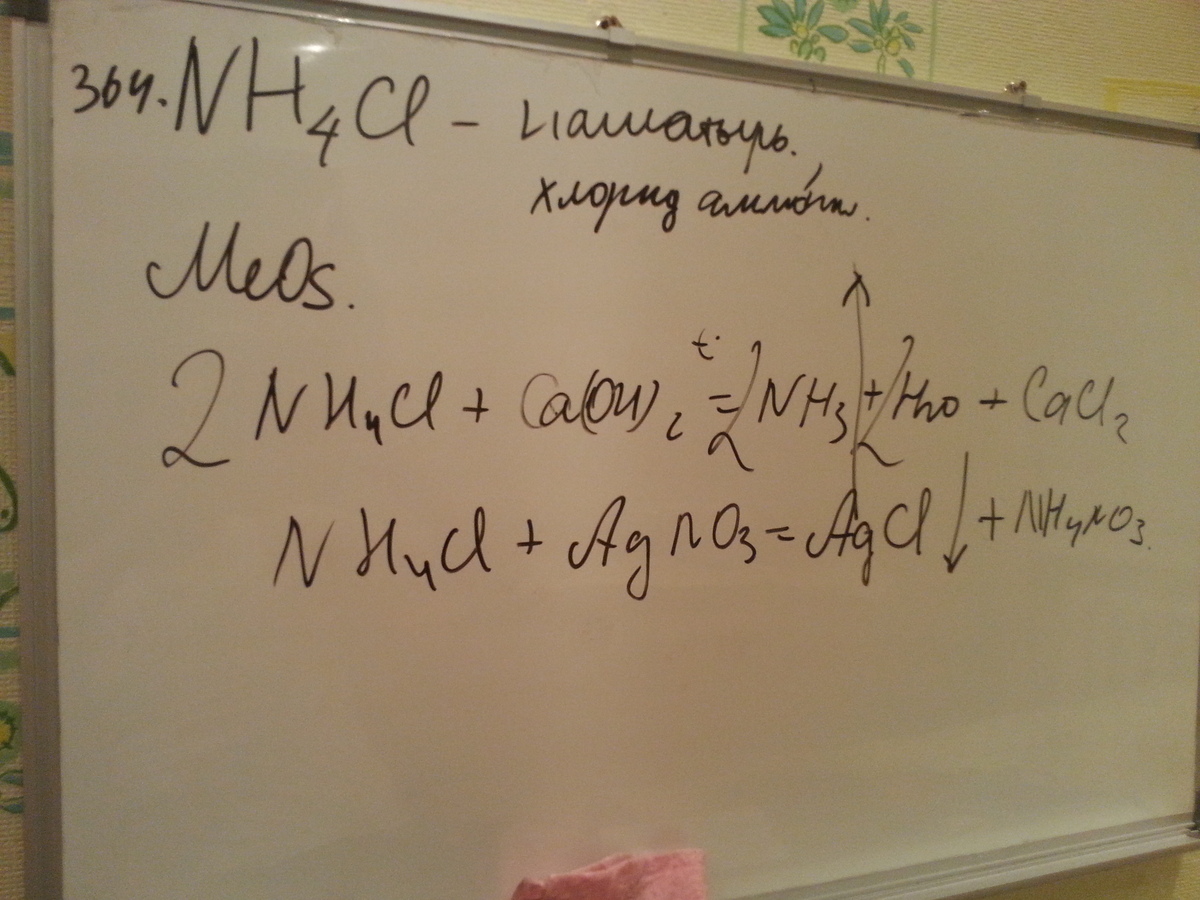 364. NH₄Cl – нашатырь.
хлорид аммония.
MeOs.
2NH₄Cl + Ca(OH)₂ =ᵗ° 2NH₃↑ + 2H₂O + CaCl₂
NH₄Cl + AgNO₃ = AgCl↓ + NH₄NO₃.